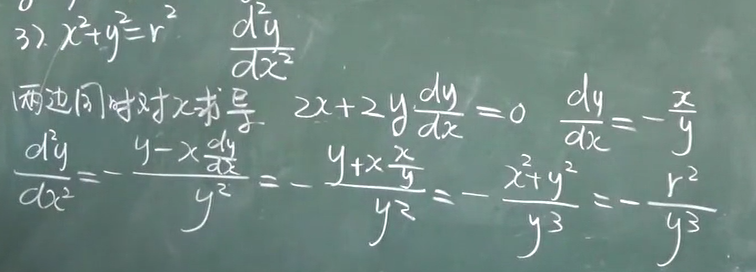 3). x²+y²=r² d²y/dx²
两边同时对x求导 2x+2y dy/dx=0 dy/dx=-x/y
d²y/dx²=-(y-x dy/dx)/y²=-(y+x x/y)/y²=-(x²+y²)/y³=-r²/y³